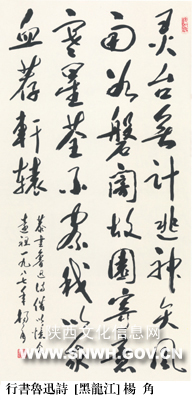 灵台無計逃神矢風
雨如磐闇故園寄意
寒星荃不察我以我
血荐軒轅
一九八七年
陕西文化信息网
WWW.SNWH.GOV.CN
行書魯迅詩 [黑龍江] 楊 角